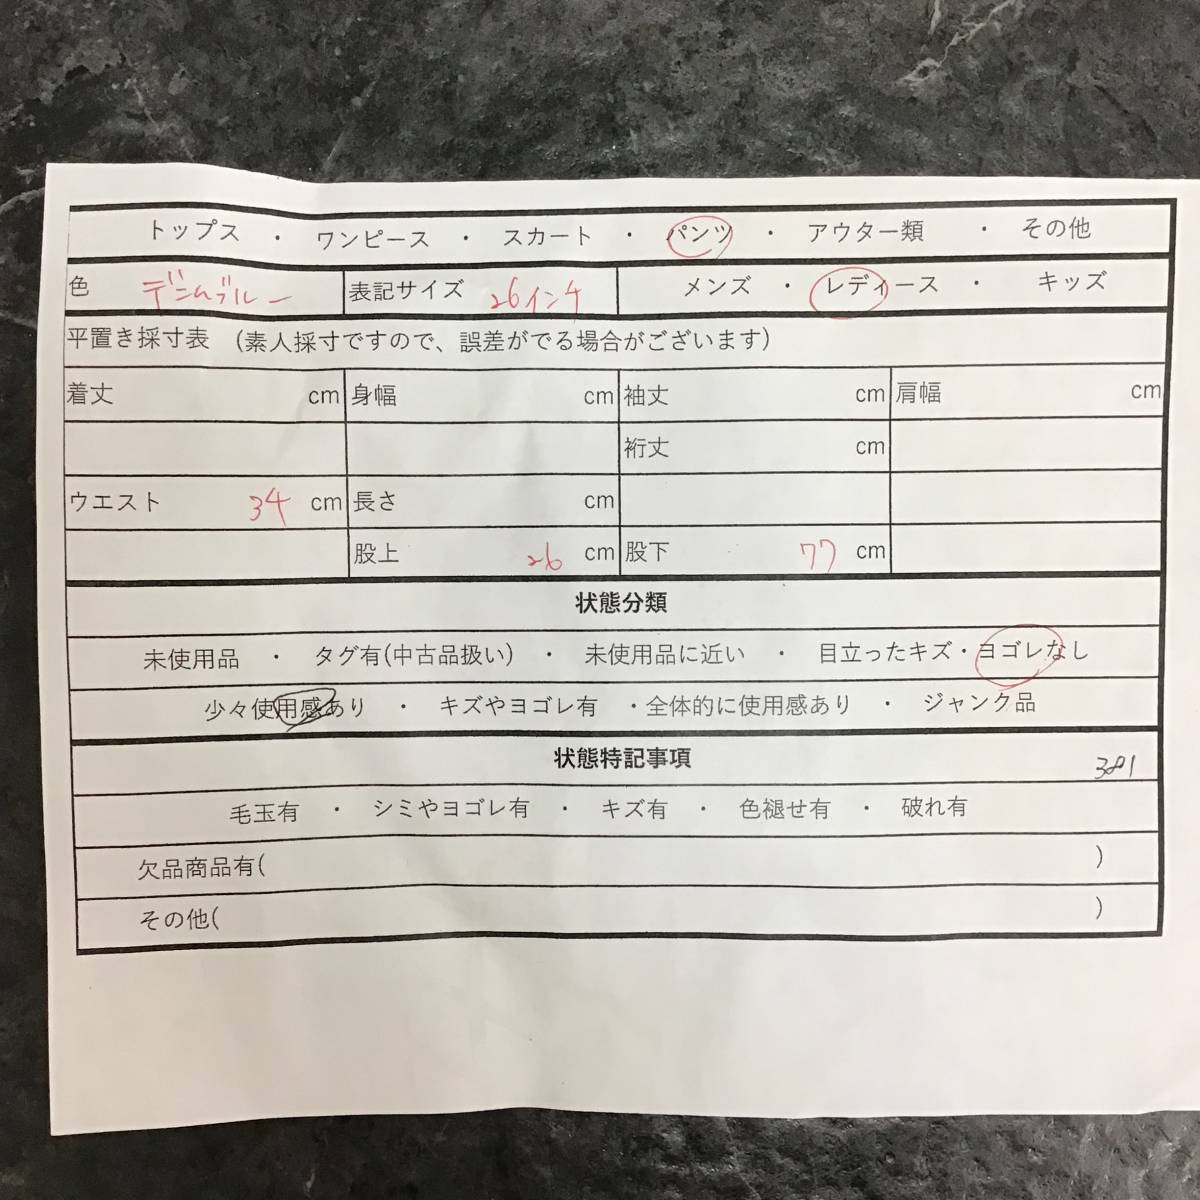 トップス ・ ワンピース ・ スカート ・ パンツ ・ アウター類 ・ その他
色 デニムブルー 表記サイズ 26インチ メンズ ・ レディース ・ キッズ
平置き採寸表 (素人採寸ですので、誤差がでる場合がございます)
着丈 cm 身幅 cm 袖丈 cm 肩幅 cm
裄丈 cm
ウエスト 34 cm 長さ cm
股上 26 cm 股下 77 cm
状態分類
未使用品 ・ タグ有(中古品扱い) ・ 未使用品に近い ・ 目立ったキズ・ヨゴレなし
少々使用感あり ・ キズやヨゴレ有 ・全体的に使用感あり ・ ジャンク品
状態特記事項 381
毛玉有 ・ シミやヨゴレ有 ・ キズ有 ・ 色褪せ有 ・ 破れ有
欠品商品有( )
その他( )